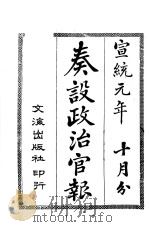 宣統元年 十月分
奏設政治官報
文海出版社印行